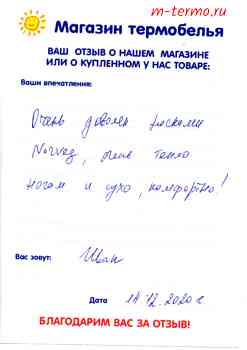 m-termo.ru
Магазин термобелья
ВАШ ОТЗЫВ О НАШЕМ МАГАЗИНЕ
ИЛИ О КУПЛЕННОМ У НАС ТОВАРЕ:
Ваши впечатления:
Очень доволен носками
Norveg, очень тепло
ногам и сухо, комфортно!
Вас зовут: Иван
Дата 14.12.2020 г
БЛАГОДАРИМ ВАС ЗА ОТЗЫВ!